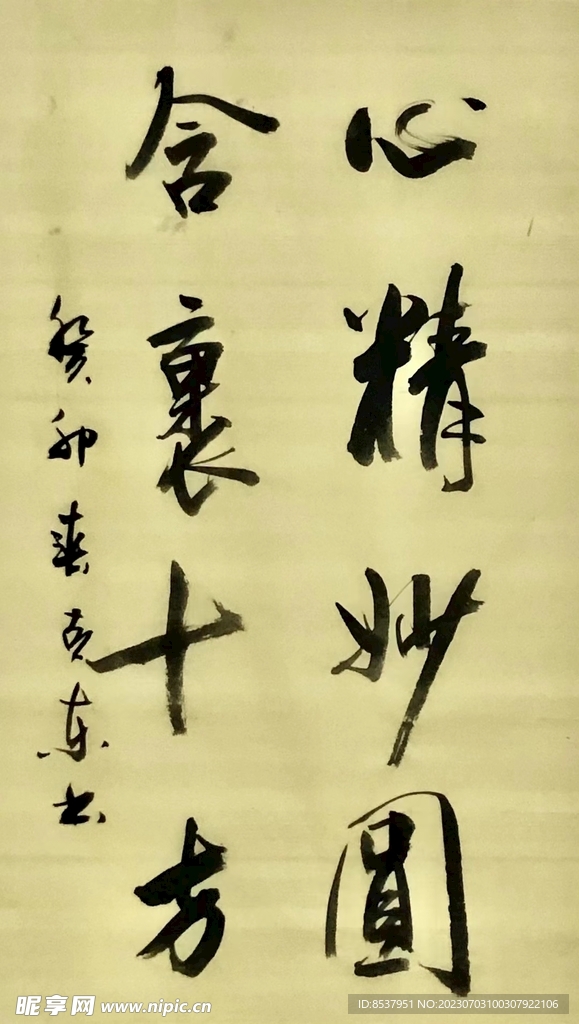 心精妙圓
含裹十方
癸卯 東书
昵享网 www.nipic.cn
ID:8537951 NO:20230703100307922106